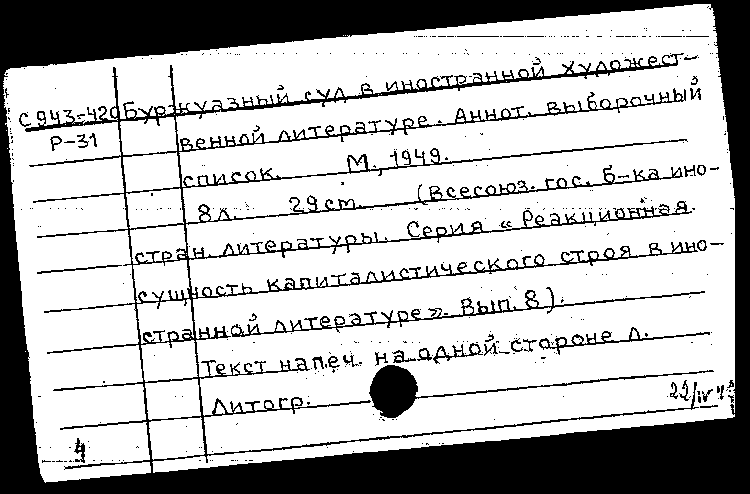 С943-420 Буржуазный суд в иностранной художест-
Р-31 венной литературе. Аннот. выборочный
список. М., 1949.
8л. 29см. (Всесоюз. гос. б-ка ино-
стран. литературы. Серия «Реакционная
сущность капиталистического строя в ино-
странной литературе». Вып. 8).
Текст напеч. на одной стороне л.
Литогр.
4